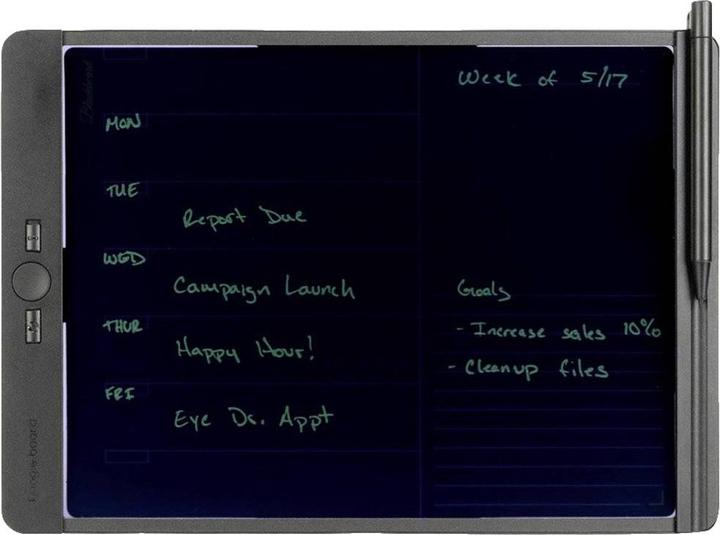 Week of 5/17
MON
TUE
Report Due
WED
Campaign Launch
THUR
Happy Hour!
FRI
Eye Dr. Appt
Goals
- Increase sales 10%
- Cleanup files